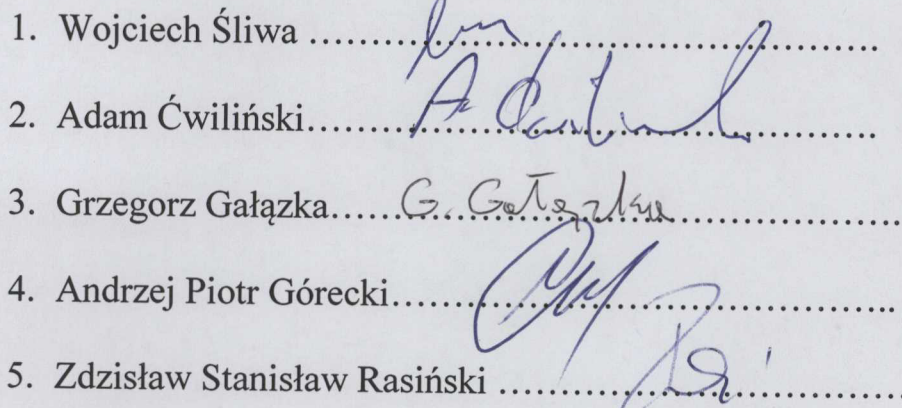 1. Wojciech Śliwa ...........................................................
2. Adam Ćwiliński...........................................................
3. Grzegorz Gałązka......G. Gałązka...........................
4. Andrzej Piotr Górecki....................................................
5. Zdzisław Stanisław Rasiński ..........................................